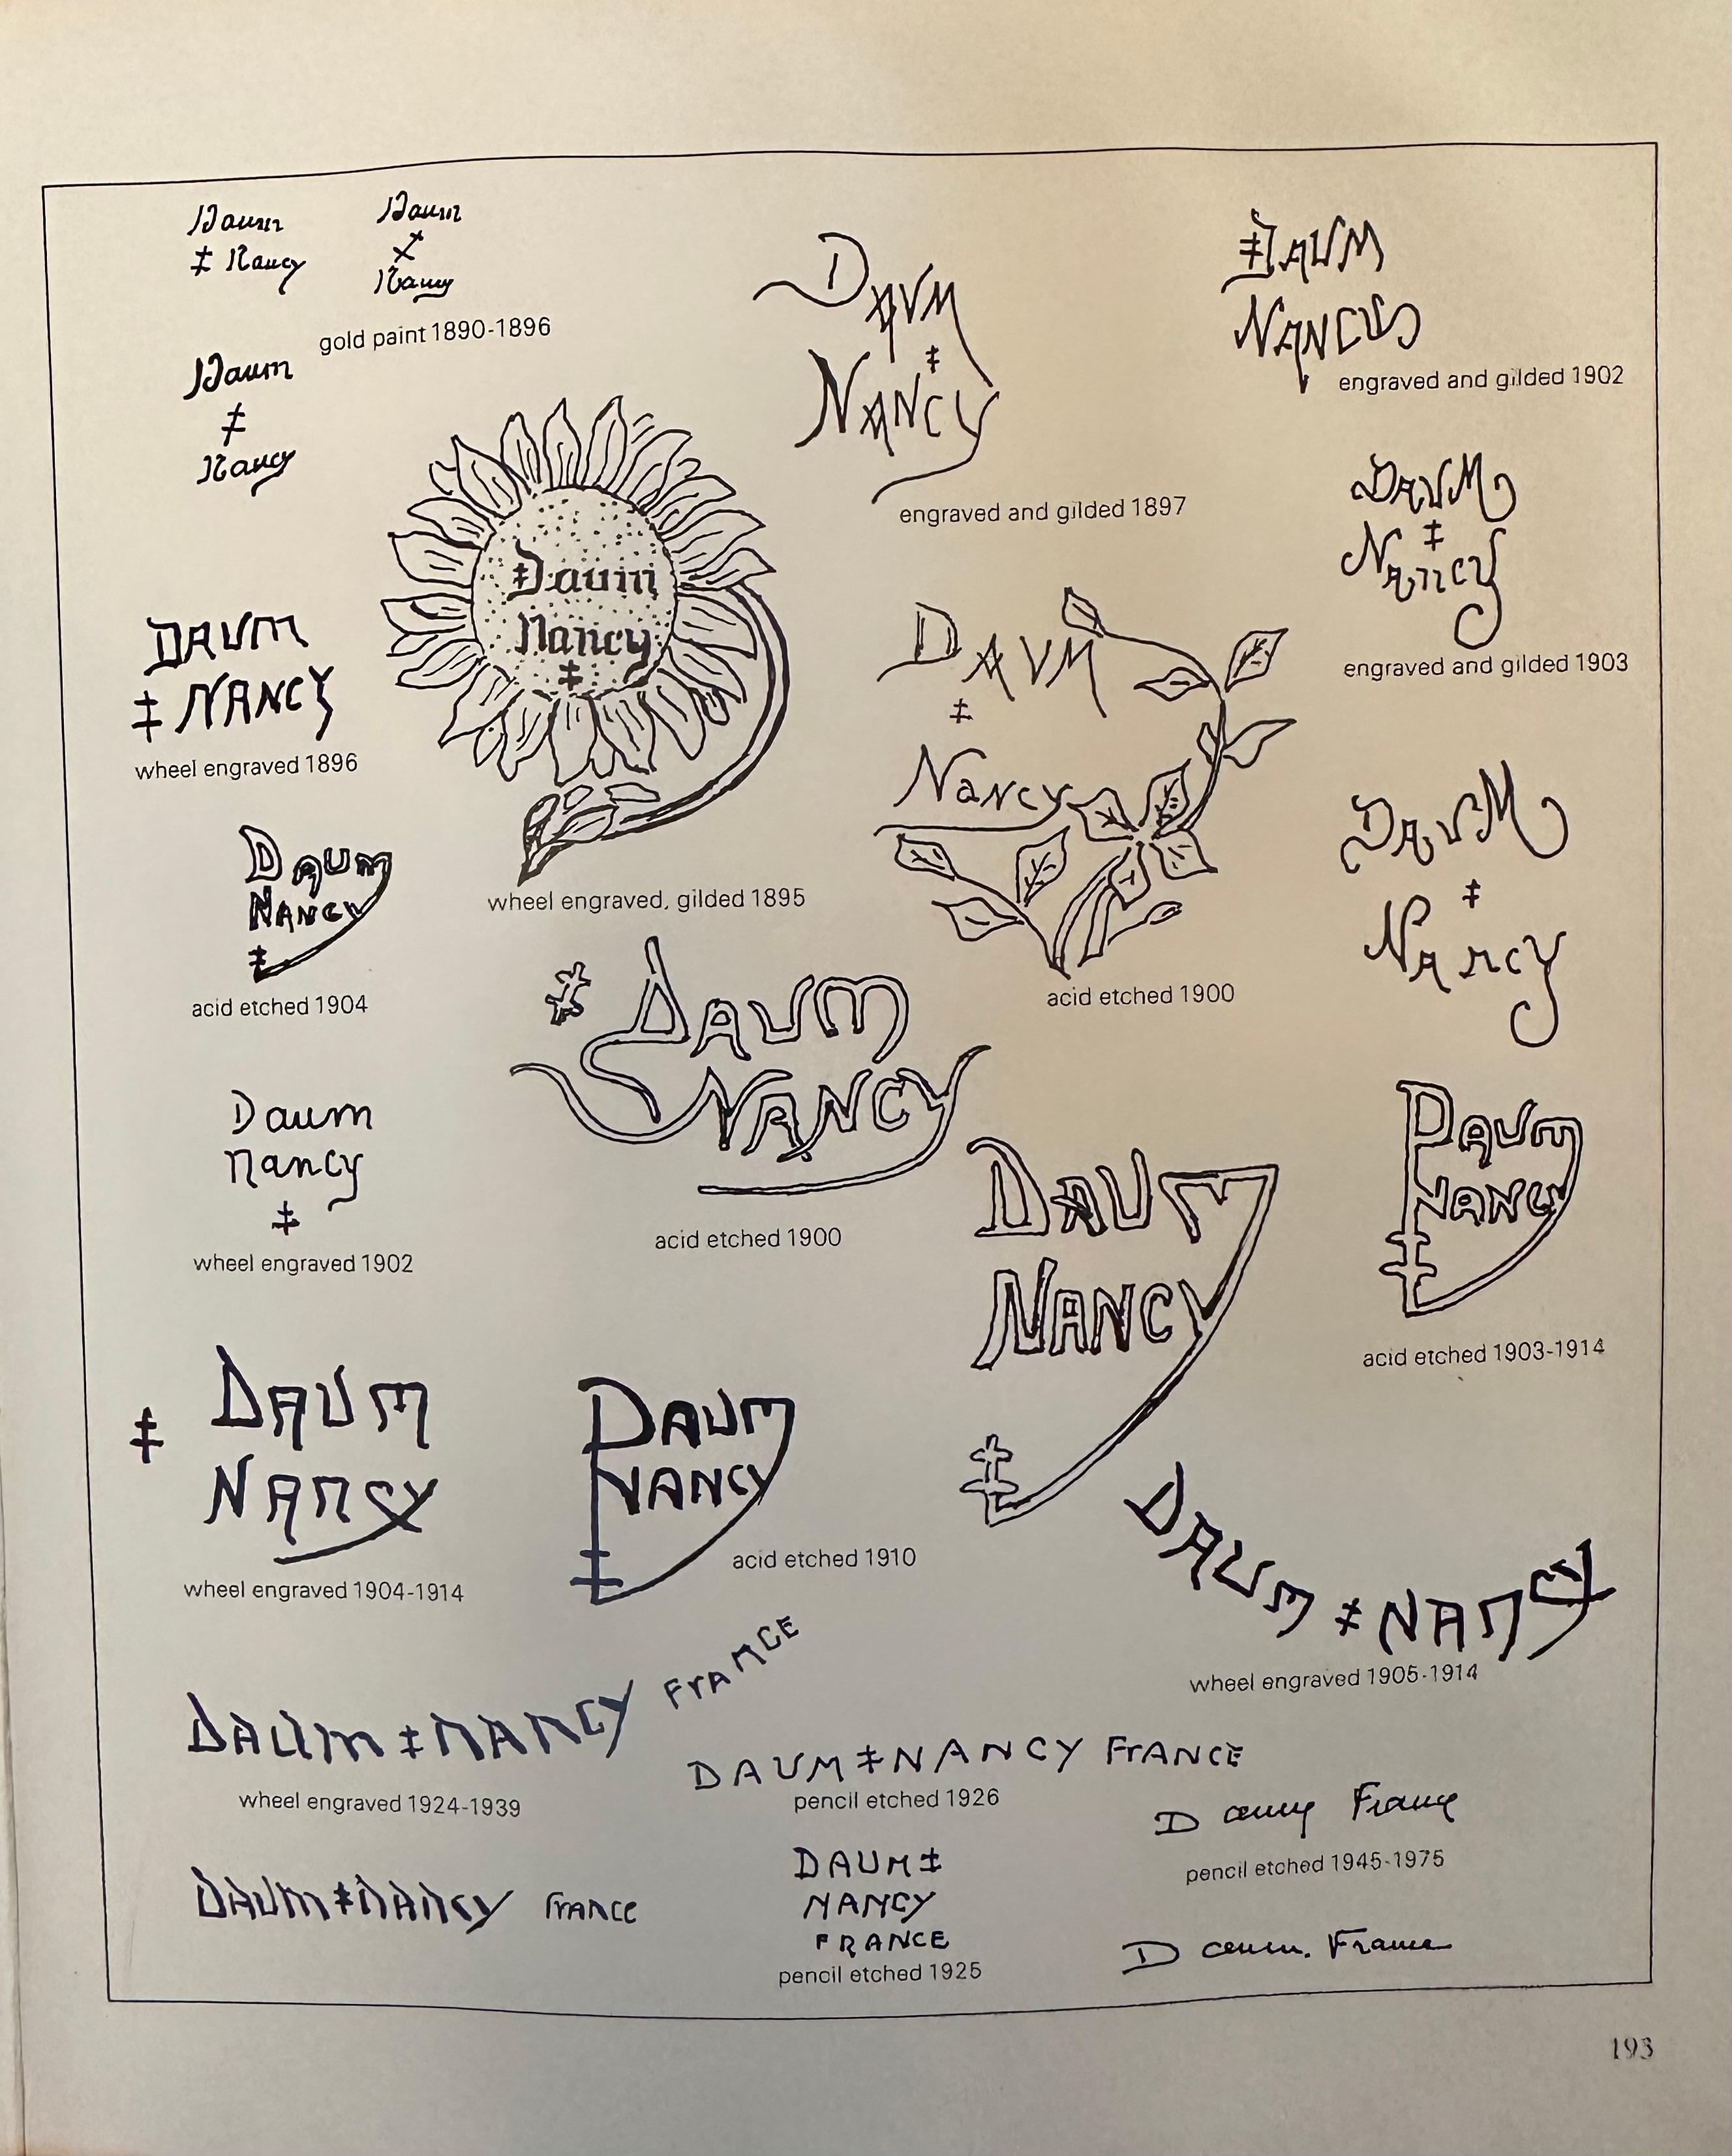 Daum
‡ Nancy
Daum
‡
Nancy
gold paint 1890-1896
Daum
‡
Nancy
DAUM
‡
NANCY
engraved and gilded 1897
‡DAUM
NANCY
engraved and gilded 1902
Daum
Nancy
‡
wheel engraved, gilded 1895
DAUM
‡
Nancy
engraved and gilded 1903
DAUM
‡ NANCY
wheel engraved 1896
DAUM
‡
Nancy
acid etched 1900
DAUM
NANCY
‡
acid etched 1904
DAUM
‡
Nancy
‡ DAUM
NANCY
acid etched 1900
Daum
nancy
‡
wheel engraved 1902
DAUM
NANCY
‡
DAUM
NANCY
‡
acid etched 1903-1914
‡ DAUM
NANCY
wheel engraved 1904-1914
DAUM
NANCY
‡
acid etched 1910
DAUM ‡ NANCY
wheel engraved 1905-1914
DAUM ‡ NANCY FrANCE
wheel engraved 1924-1939
DAUM ‡ NANCY FrANCE
pencil etched 1926
D France
pencil etched 1945-1975
DAUM ‡ NANCY FrANCE
DAUM ‡
NANCY
FRANCE
pencil etched 1925
D France
193